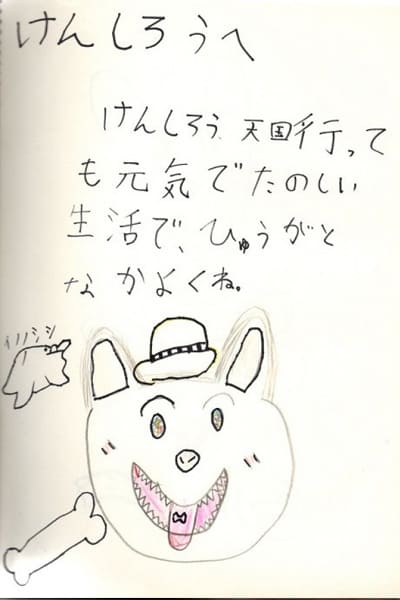 けんしろうへ
けんしろう天国行って
も元気でたのしい
生活で、ひゅうがと
なかよくね。
イノシシ